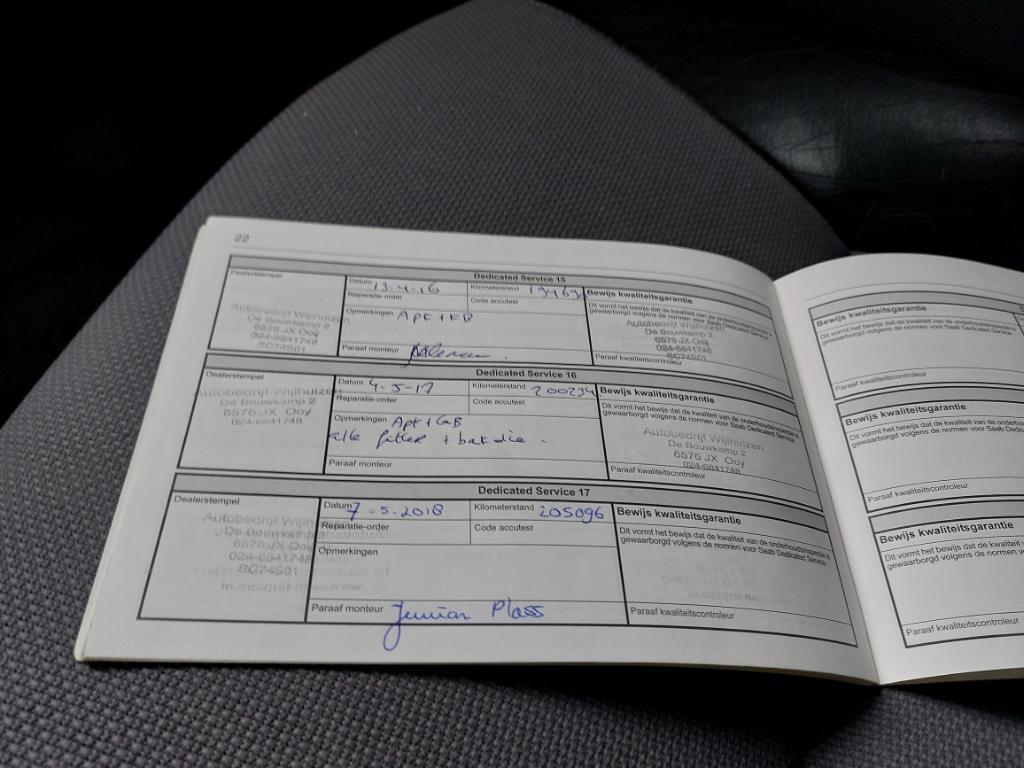 22
Dedicated Service 15
Dealerstempel
Datum 13-4-16
Kilometerstand
Bewijs kwaliteitsgarantie
Reparatie-order
Code accutest
Dit vormt het bewijs dat de kwaliteit van de onderhoudsinspectie is
gewaarborgd volgens de normen voor Saab Dedicated Service
Opmerkingen
Autobedrijf Wijlhuizen
De Bouwkamp 2
6576 JX Ooy
024-6841746
SC74S01
Autobedrijf Wijlhuizen
De Bouwkamp 2
6576 JX Ooy
024-6841746
SC74S01
Paraaf monteur
Paraaf kwaliteitscontroleur
Dedicated Service 16
Dealerstempel
Datum 4-5-17
Kilometerstand 200234
Bewijs kwaliteitsgarantie
Reparatie-order
Code accutest
Dit vormt het bewijs dat de kwaliteit van de onderhoudsinspectie is
gewaarborgd volgens de normen voor Saab Dedicated Service
Opmerkingen Apk + GB
alle filter +
Autobedrijf Wijlhuizen
De Bouwkamp 2
6576 JX Ooy
024-6841746
Autobedrijf Wijlhuizen
De Bouwkamp 2
6576 JX Ooy
024-6841746
Paraaf monteur
Paraaf kwaliteitscontroleur
Dedicated Service 17
Dealerstempel
Datum 7-5-2018
Kilometerstand 205096
Bewijs kwaliteitsgarantie
Reparatie-order
Code accutest
Dit vormt het bewijs dat de kwaliteit van de onderhoudsinspectie is
gewaarborgd volgens de normen voor Saab Dedicated Service
Opmerkingen
De Bouwkamp
024-6841746
SC74S01
Paraaf monteur Plass
Paraaf kwaliteitscontroleur
Bewijs kwaliteitsgarantie
Dit vormt het bewijs dat de kwaliteit van de
gewaarborgd volgens de normen voor Saab
Paraaf kwaliteitscontroleur
Bewijs kwaliteitsgarantie
Dit vormt het bewijs dat de kwaliteit van de
gewaarborgd volgens de normen voor
Paraaf kwaliteitscontroleur
Bewijs kwaliteitsgarantie
Dit vormt het bewijs dat de kwaliteit van de
gewaarborgd volgens de normen
Paraaf kwaliteitscontroleur